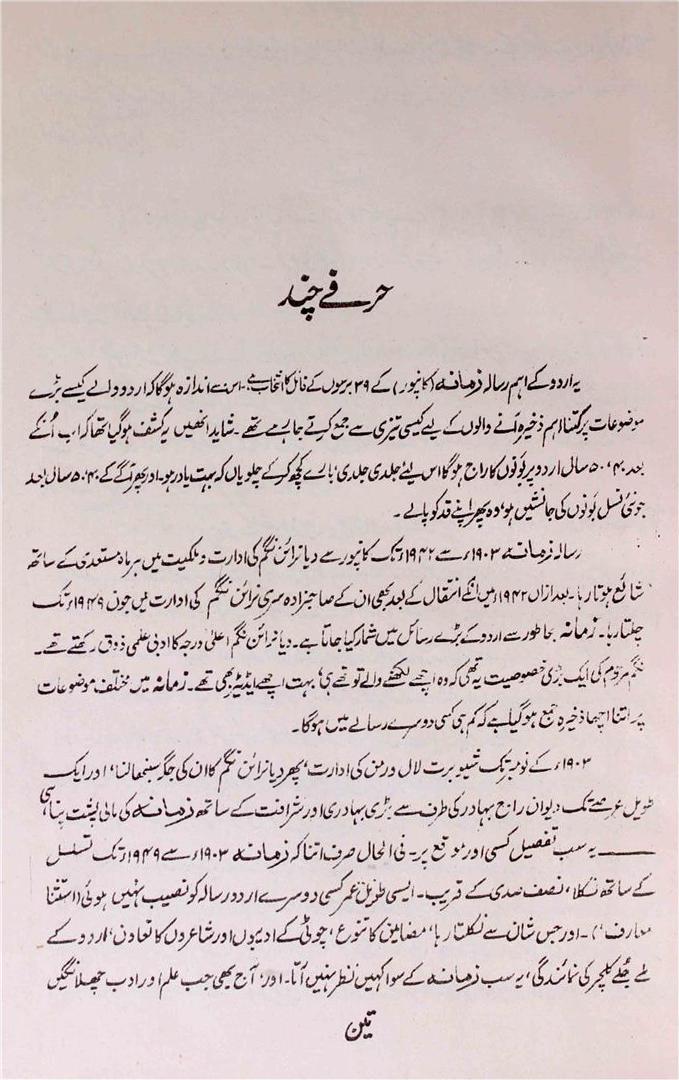 حرفے چند
یہ اردو کے اہم رسالہ زمانہ (کانپور) کے ۳۹ برسوں کے فائل کا انتخاب ہے۔ اس سے اندازہ ہوگا کہ اردو والے کیسے بڑے
موضوعات پر کتنا اہم ذخیرہ آنے والوں کے لیے کیسی تیزی سے جمع کرتے جا رہے تھے۔ شاید انھیں یہ کشف ہوگیا تھا کہ اب اُنکے
بعد ۴۰، ۵۰ سال اردو پر بَونوں کا راج ہوگا اس لیئے جلدی جلدی بارے کچھ کر کے چلو یاں کہ بہت یاد رہو۔ اور پھر آگے کے ۴۰، ۵۰ سال بعد
جو نئی نسل بَونوں کی جانشیں ہو، وہ پھر اپنے قد کو پالے۔
رسالہ زمانہ ۱۹۰۳ء سے ۱۹۴۲ء تک کانپور سے دیا نرائن نگم کی ادارت و ملکیت میں ہر ماہ مستعدی کے ساتھ
شائع ہوتا رہا۔ بعد ازاں ۱۹۴۲ء میں انکے انتقال کے بعد بھی ان کے صاحبزادہ سری نرائن نگم کی ادارت میں جون ۱۹۴۹ء تک
چلتا رہا۔ زمانہ بجا طور سے اردو کے بڑے رسائل میں شمار کیا جاتا ہے۔ دیا نرائن نگم اعلیٰ درجہ کا ادبی علمی ذوق رکھتے تھے۔
نگم مرحوم کی ایک بڑی خصوصیت یہ تھی کہ وہ اچھے لکھنے والے تو تھے ہی، بہت اچھے ایڈیٹر بھی تھے۔ زمانہ میں مختلف موضوعات
پر اتنا اچھا ذخیرہ جمع ہوگیا ہے کہ کم ہی کسی دوسرے رسالے میں ہوگا۔
۱۹۰۳ء کے نومبر تک شیو برت لال ورمن کی ادارت، پھر دیا نرائن نگم کا ان کی جگہ سنبھالنا، اور ایک
طویل عرصے تک دیوان راج بہادر کی طرف سے بڑی بہادری اور شرافت کے ساتھ زمانہ کی مالی پشت پناہی
ــــ یہ سب تفصیل کسی اور موقع پر۔ فی الحال صرف اتنا کہ زمانہ ۱۹۰۳ء سے ۱۹۴۹ء تک تسلسل
کے ساتھ نکلا، نصف صدی کے قریب۔ ایسی طویل عمر کسی دوسرے اردو رسالہ کو نصیب نہیں ہوئی (استثنا
معارف،)۔ اور جس شان سے نکلتا رہا، مضامین کا تنوع، چوٹی کے ادیبوں اور شاعروں کا تعاون، اردو کے
ملے جُلے کلچر کی نمائندگی، یہ سب زمانہ کے سوا کہیں نظر نہیں آتا۔ اور، آج بھی جب علم اور ادب چھلانگیں
تین